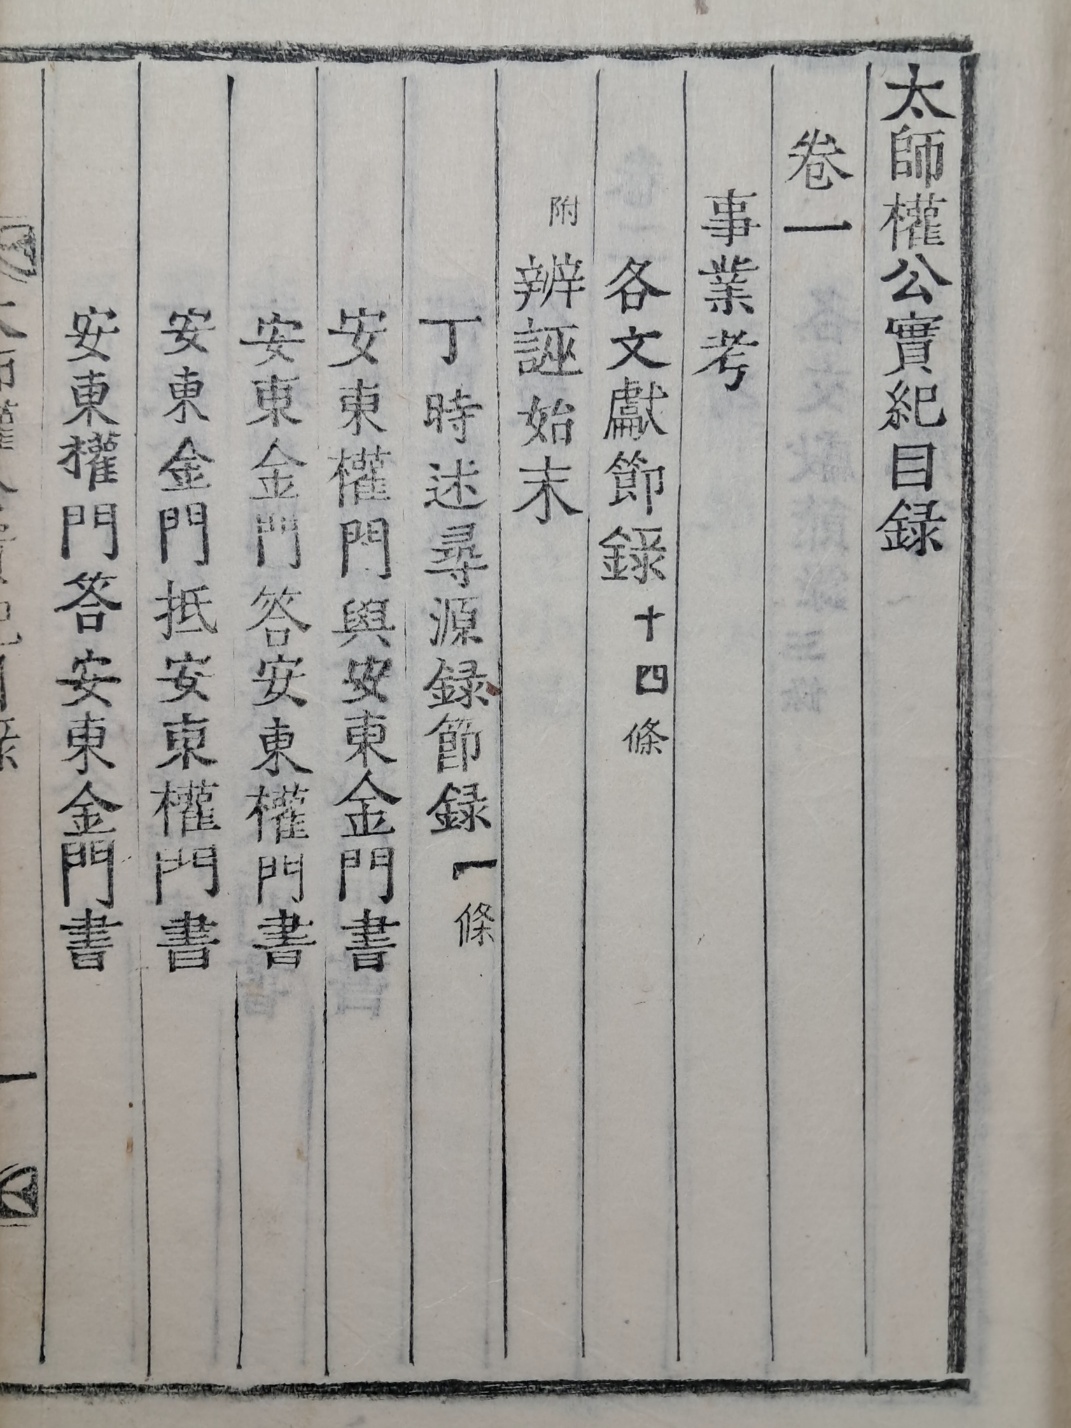 太師權公實紀目録
卷一
事業考
各文獻節録十四條
附辨誣始末
丁時述尋源録節録一條
安東權門與安東金門書
安東金門答安東權門書
安東金門抵安東權門書
安東權門答安東金門書